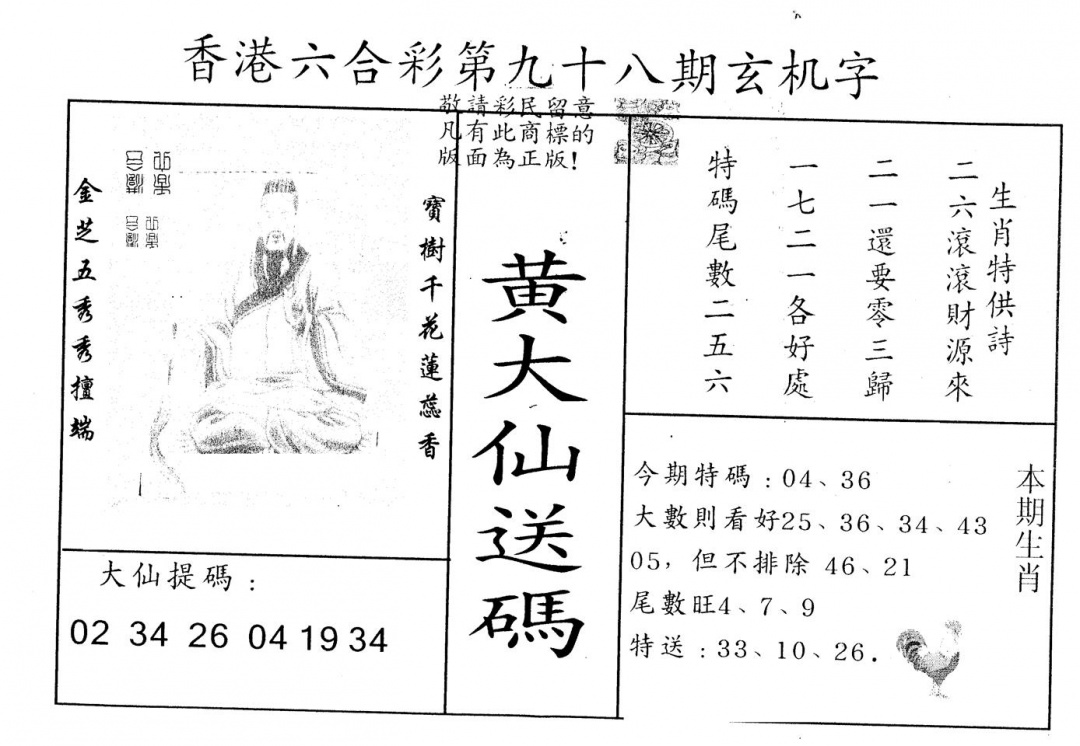 香港六合彩第九十八期玄机字
敬請彩民留意
凡有此商標的
版面為正版!
寶樹千花蓮蕊香
金芝五秀秀擅端
大仙提碼:
02 34 26 04 19 34
黄大仙送碼
生肖特供詩
二六滾滾財源來
二一還要零三歸
一七二一各好處
特碼尾數二五六
本期生肖
今期特碼:04、36
大數則看好25、36、34、43
05,但不排除 46、21
尾數旺4、7、9
特送:33、10、26.